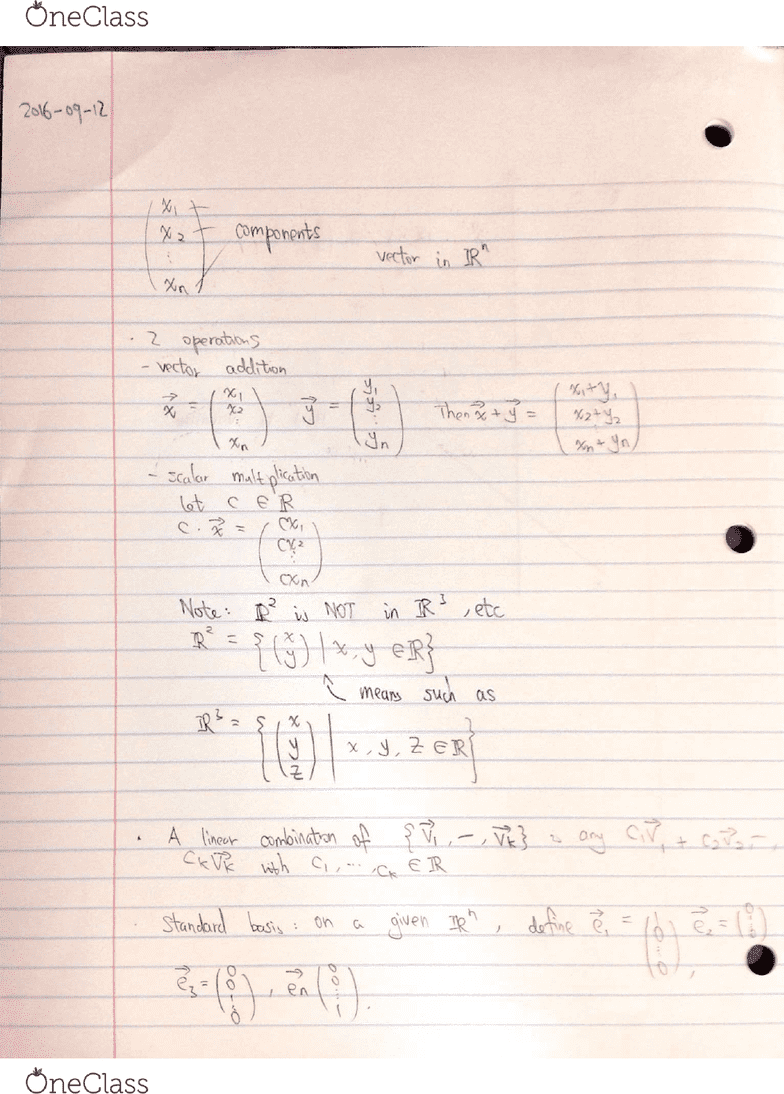 OneClass
2016-09-12
(x₁ x₂ ⋮ xₙ) components
vector in ℝⁿ
· 2 operations
- vector addition
x⃗ = (x₁ x₂ ⋮ xₙ) y⃗ = (y₁ y₂ ⋮ yₙ) Then x⃗ + y⃗ = (x₁+y₁ x₂+y₂ ⋮ xₙ+yₙ)
- scalar multplication
let c ∈ ℝ
c · x⃗ = (cx₁ cx₂ ⋮ cxₙ)
Note: ℝ² is NOT in ℝ³, etc
ℝ² = {(x y) | x, y ∈ ℝ}
means such as
ℝ³ = {(x y z) | x, y, z ∈ ℝ}
· A linear combination of {v⃗₁, –, v⃗ₖ} is any c₁v⃗₁ + c₂v⃗₂, –,
cₖv⃗ₖ with c₁, ..., cₖ ∈ ℝ
· Standard basis: on a given ℝⁿ, define e⃗₁ = (1 0 ⋮ 0), e⃗₂ = (0 1 ⋮ 0)
e⃗₃ = (0 0 1 ⋮ 0), e⃗n (0 0 ⋮ 1).
OneClass